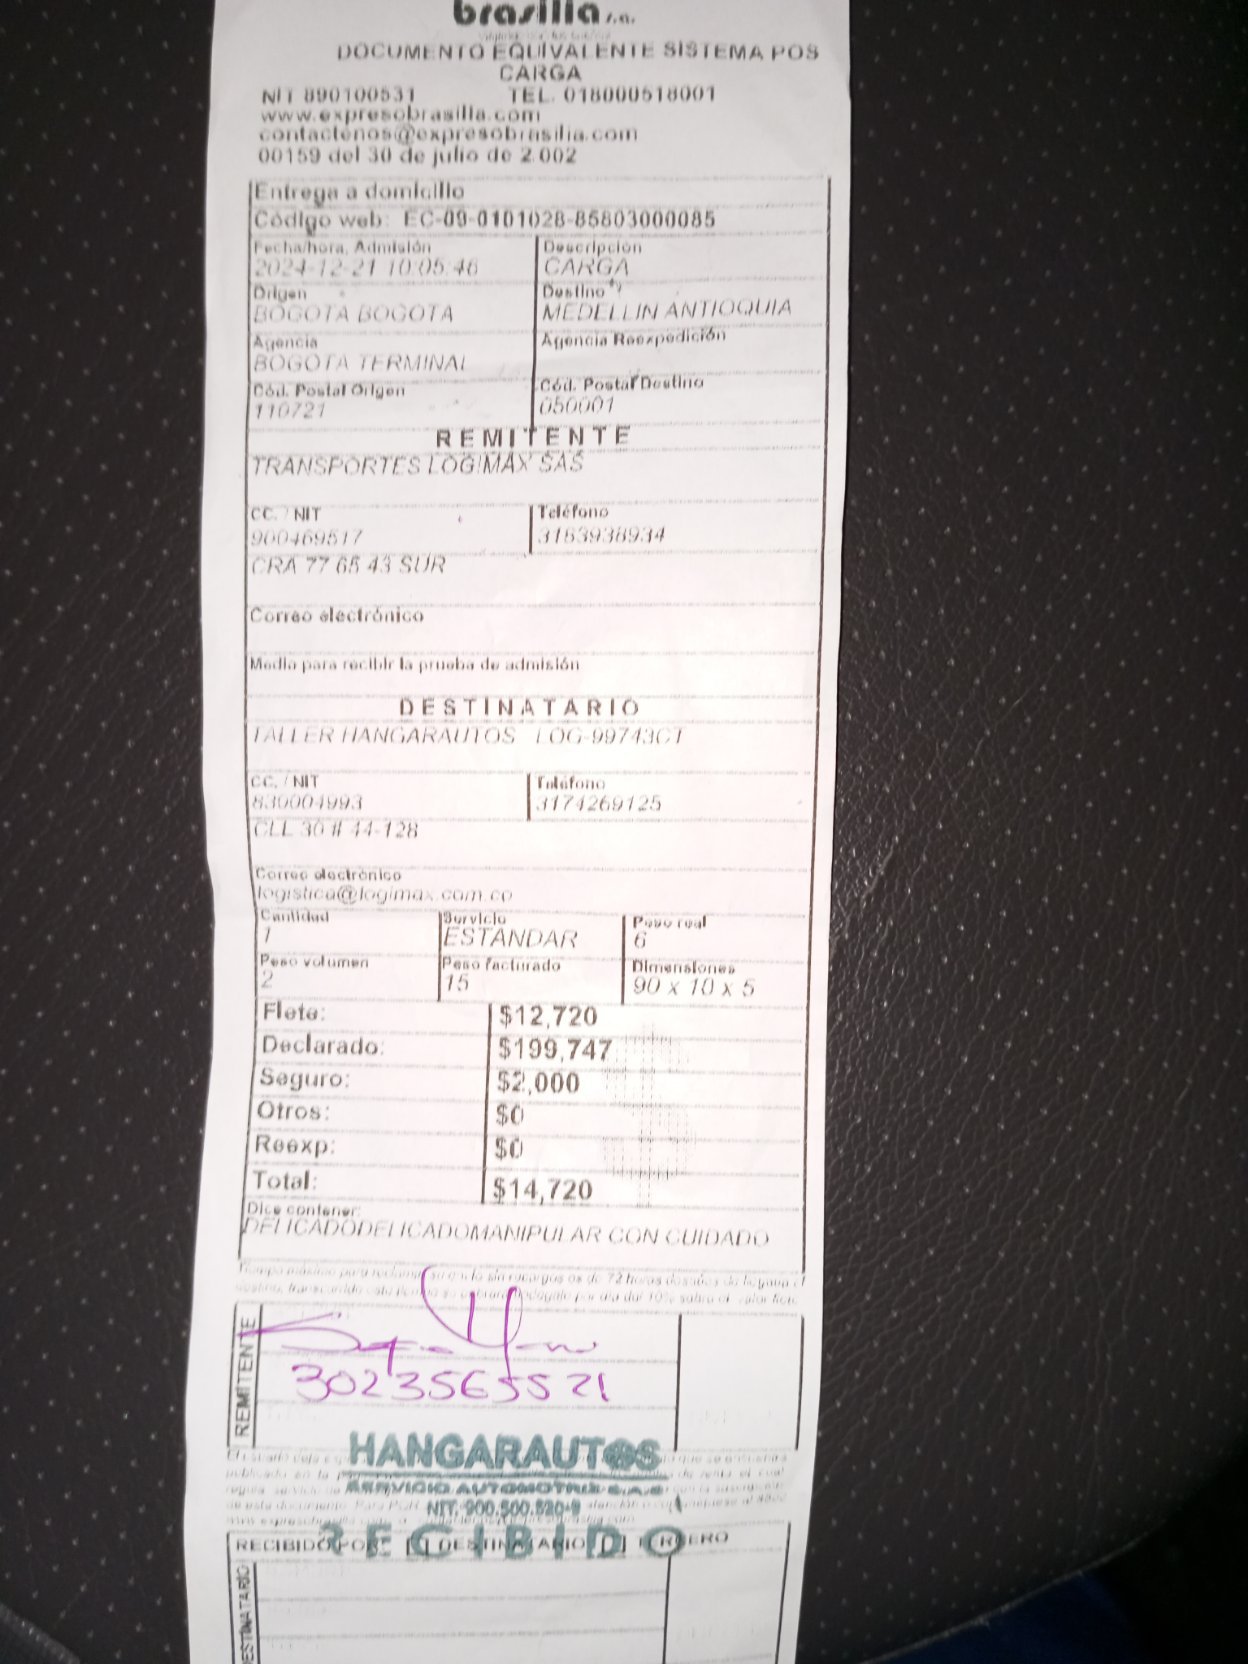 brasilia s.a.
DOCUMENTO EQUIVALENTE SISTEMA POS
CARGA
NIT 890100531 TEL. 018000518001
www.expresobrasilia.com
contactenos@expresobrasilia.com
00159 del 30 de julio de 2.002
Entrega a domicilio
Código web: EC-09-0101028-85803000085
Fecha/hora, Admisión Descripción
2024-12-21 10:05:46 CARGA
Origen Destino
BOGOTA BOGOTA MEDELLIN ANTIOQUIA
Agencia Agencia Reexpedición
BOGOTA TERMINAL
Cód. Postal Origen Cód. Postal Destino
110721 050001
REMITENTE
TRANSPORTES LOGIMAX SAS
CC. / NIT Teléfono
900469517 3153938934
CRA 77 65 43 SUR
Correo electrónico
Medio para recibir la prueba de admisión
DESTINATARIO
TALLER HANGARAUTOS LOG-99743CT
CC. / NIT Teléfono
830004993 3174269125
CLL 30 # 44-128
Correo electrónico
logistica@logimax.com.co
Cantidad Servicio Peso real
1 ESTANDAR 6
Peso volumen Peso facturado Dimensiones
2 15 90 x 10 x 5
Flete: $12,720
Declarado: $199,747
Seguro: $2,000
Otros: $0
Reexp: $0
Total: $14,720
Dice contener:
DELICADODELICADOMANIPULAR CON CUIDADO
REMITENTE
3023565521
HANGARAUTOS
SERVICIO AUTOMOTRIZ S.A.S
NIT. 900.500.520-9
RECIBIDO
RECIBIDO POR: [ ] DESTINATARIO [ ] TERCERO
DESTINATARIO